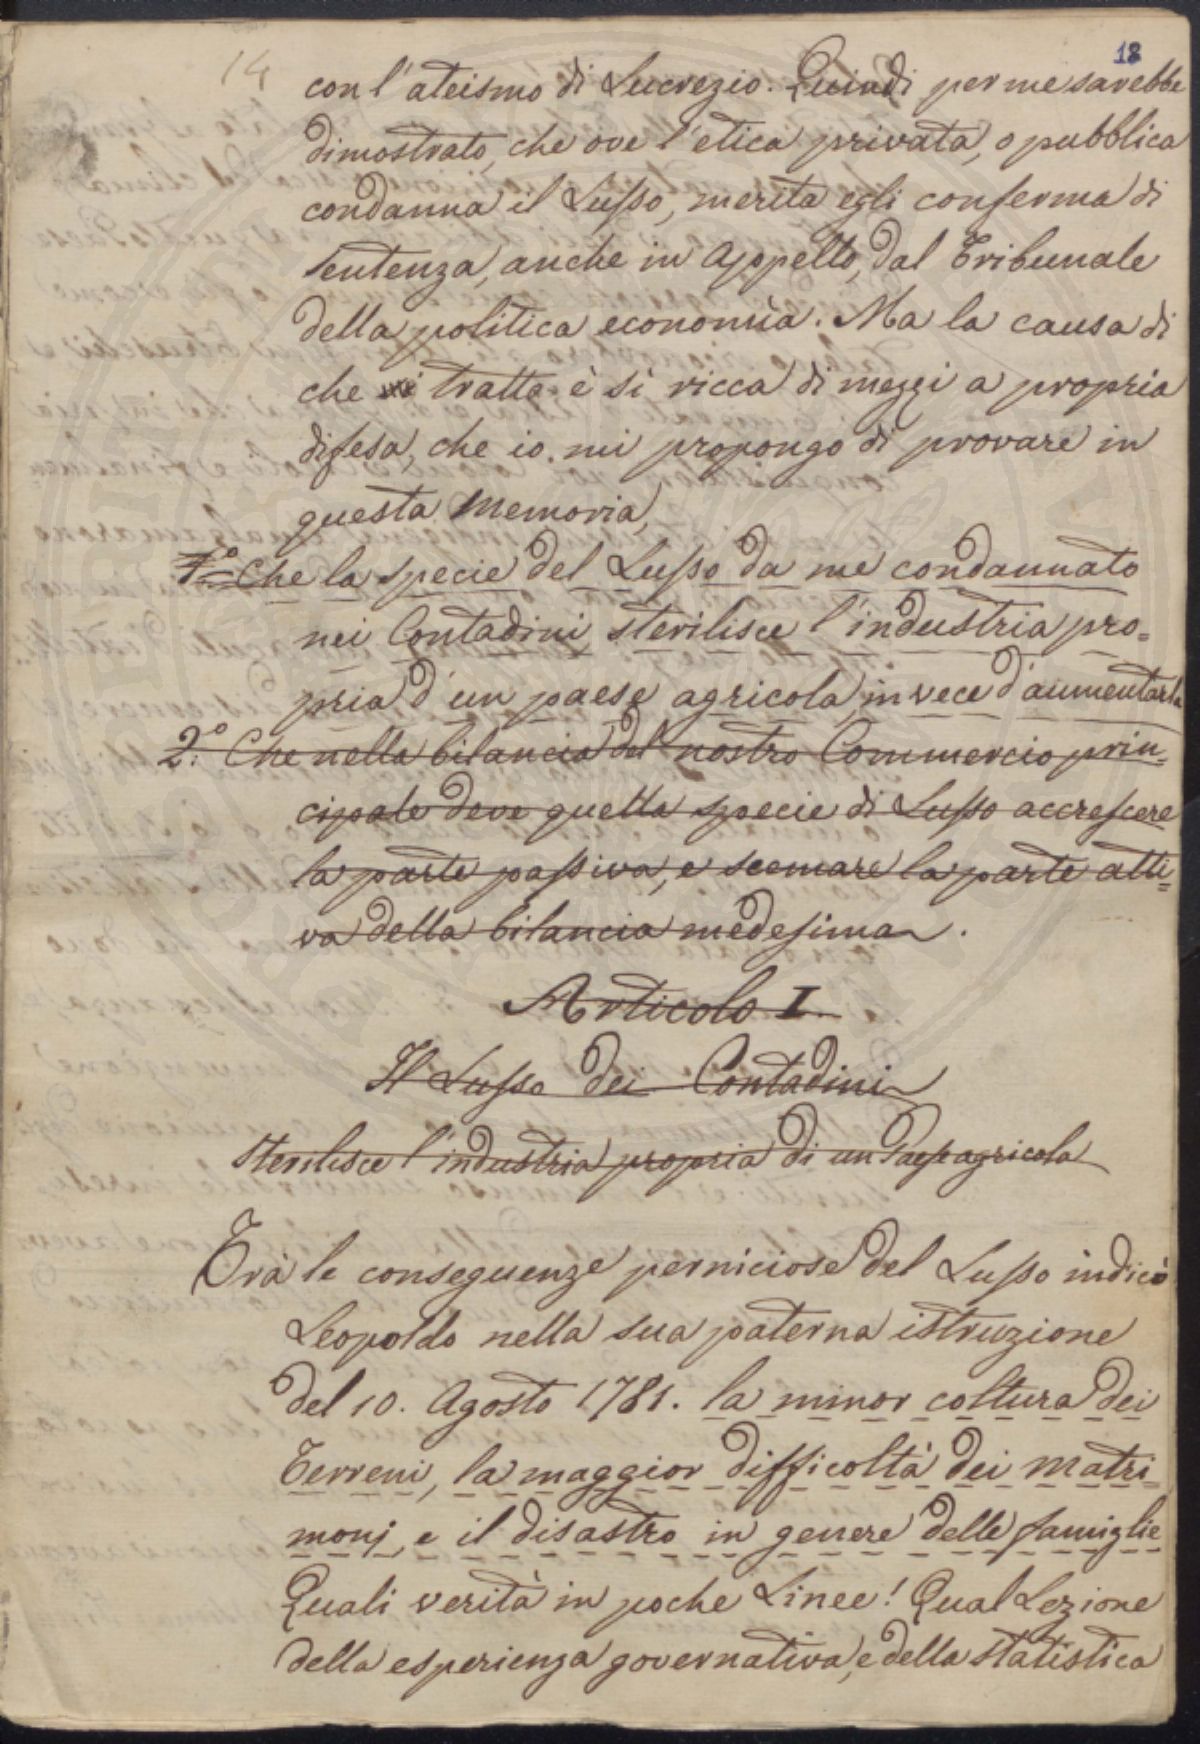 14
18
con l'ateismo di Lucrezio. Quindi per me sarebbe
dimostrato, che ove l'etica privata, o pubblica
condanna il Lusso, merita egli conferma di
sentenza, anche in Appello, dal Tribunale
della politica economia. Ma la causa di
che si tratta è sì ricca di mezzi a propria
difesa, che io mi propongo di provare in
questa Memoria,
1.° Che la specie del Lusso da me condannato
nei Contadini, sterilisce l'industria pro=
pria d'un paese agricola, in vece d'aumentarla
2.° Che nella bilancia del nostro Commercio prin=
cipale deve quella specie di Lusso accrescere
la parte passiva, e scemare la parte atti=
va della bilancia medesima.
Articolo I.
Il Lusso dei Contadini
sterilisce l'industria propria di un Paese agricola
Trà le conseguenze perniciose del Lusso indicò
Leopoldo nella sua paterna istruzione
del 10. Agosto 1781. la minor coltura dei
Terreni, la maggior difficoltà dei Matri=
monj, e il disastro in genere delle famiglie
Quali verità in poche Linee! Qual Lezione
della esperienza governativa, e della statistica